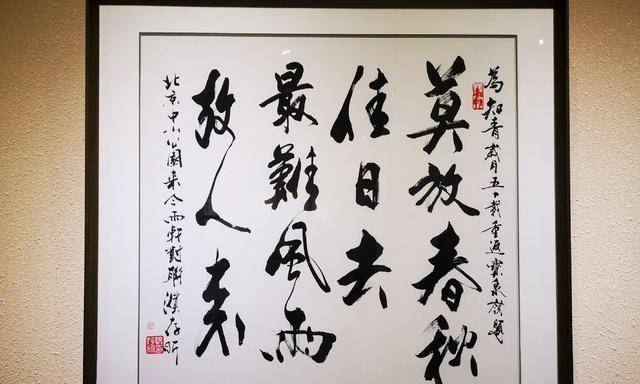 為知青歲月五十載重返寶泉嶺題
莫放春秋
佳日去
最難風雨
故人来
北京中山公園来今雨軒對聯濮存昕